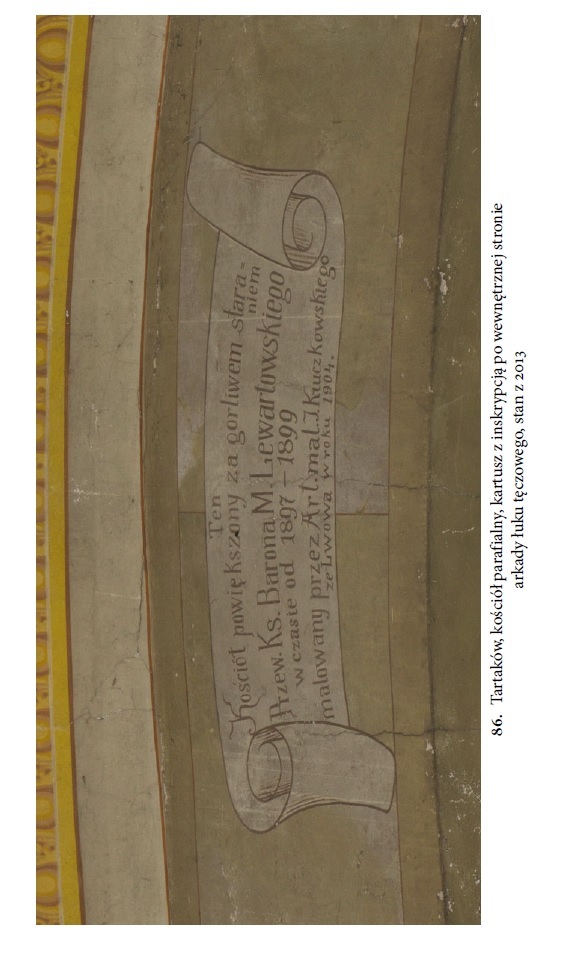 Ten
Kościół powiększony za gorliwem stara=
niem
Przew. Ks. Barona M. Lewartowskiego
w czasie od 1897 – 1899
malowany przez Art. mal. J. Kruczkowskiego
ze Lwowa w roku 1904.
86. Tartaków, kościół parafialny, kartusz z inskrypcją po wewnętrznej stronie
arkady łuku tęczowego, stan z 2013